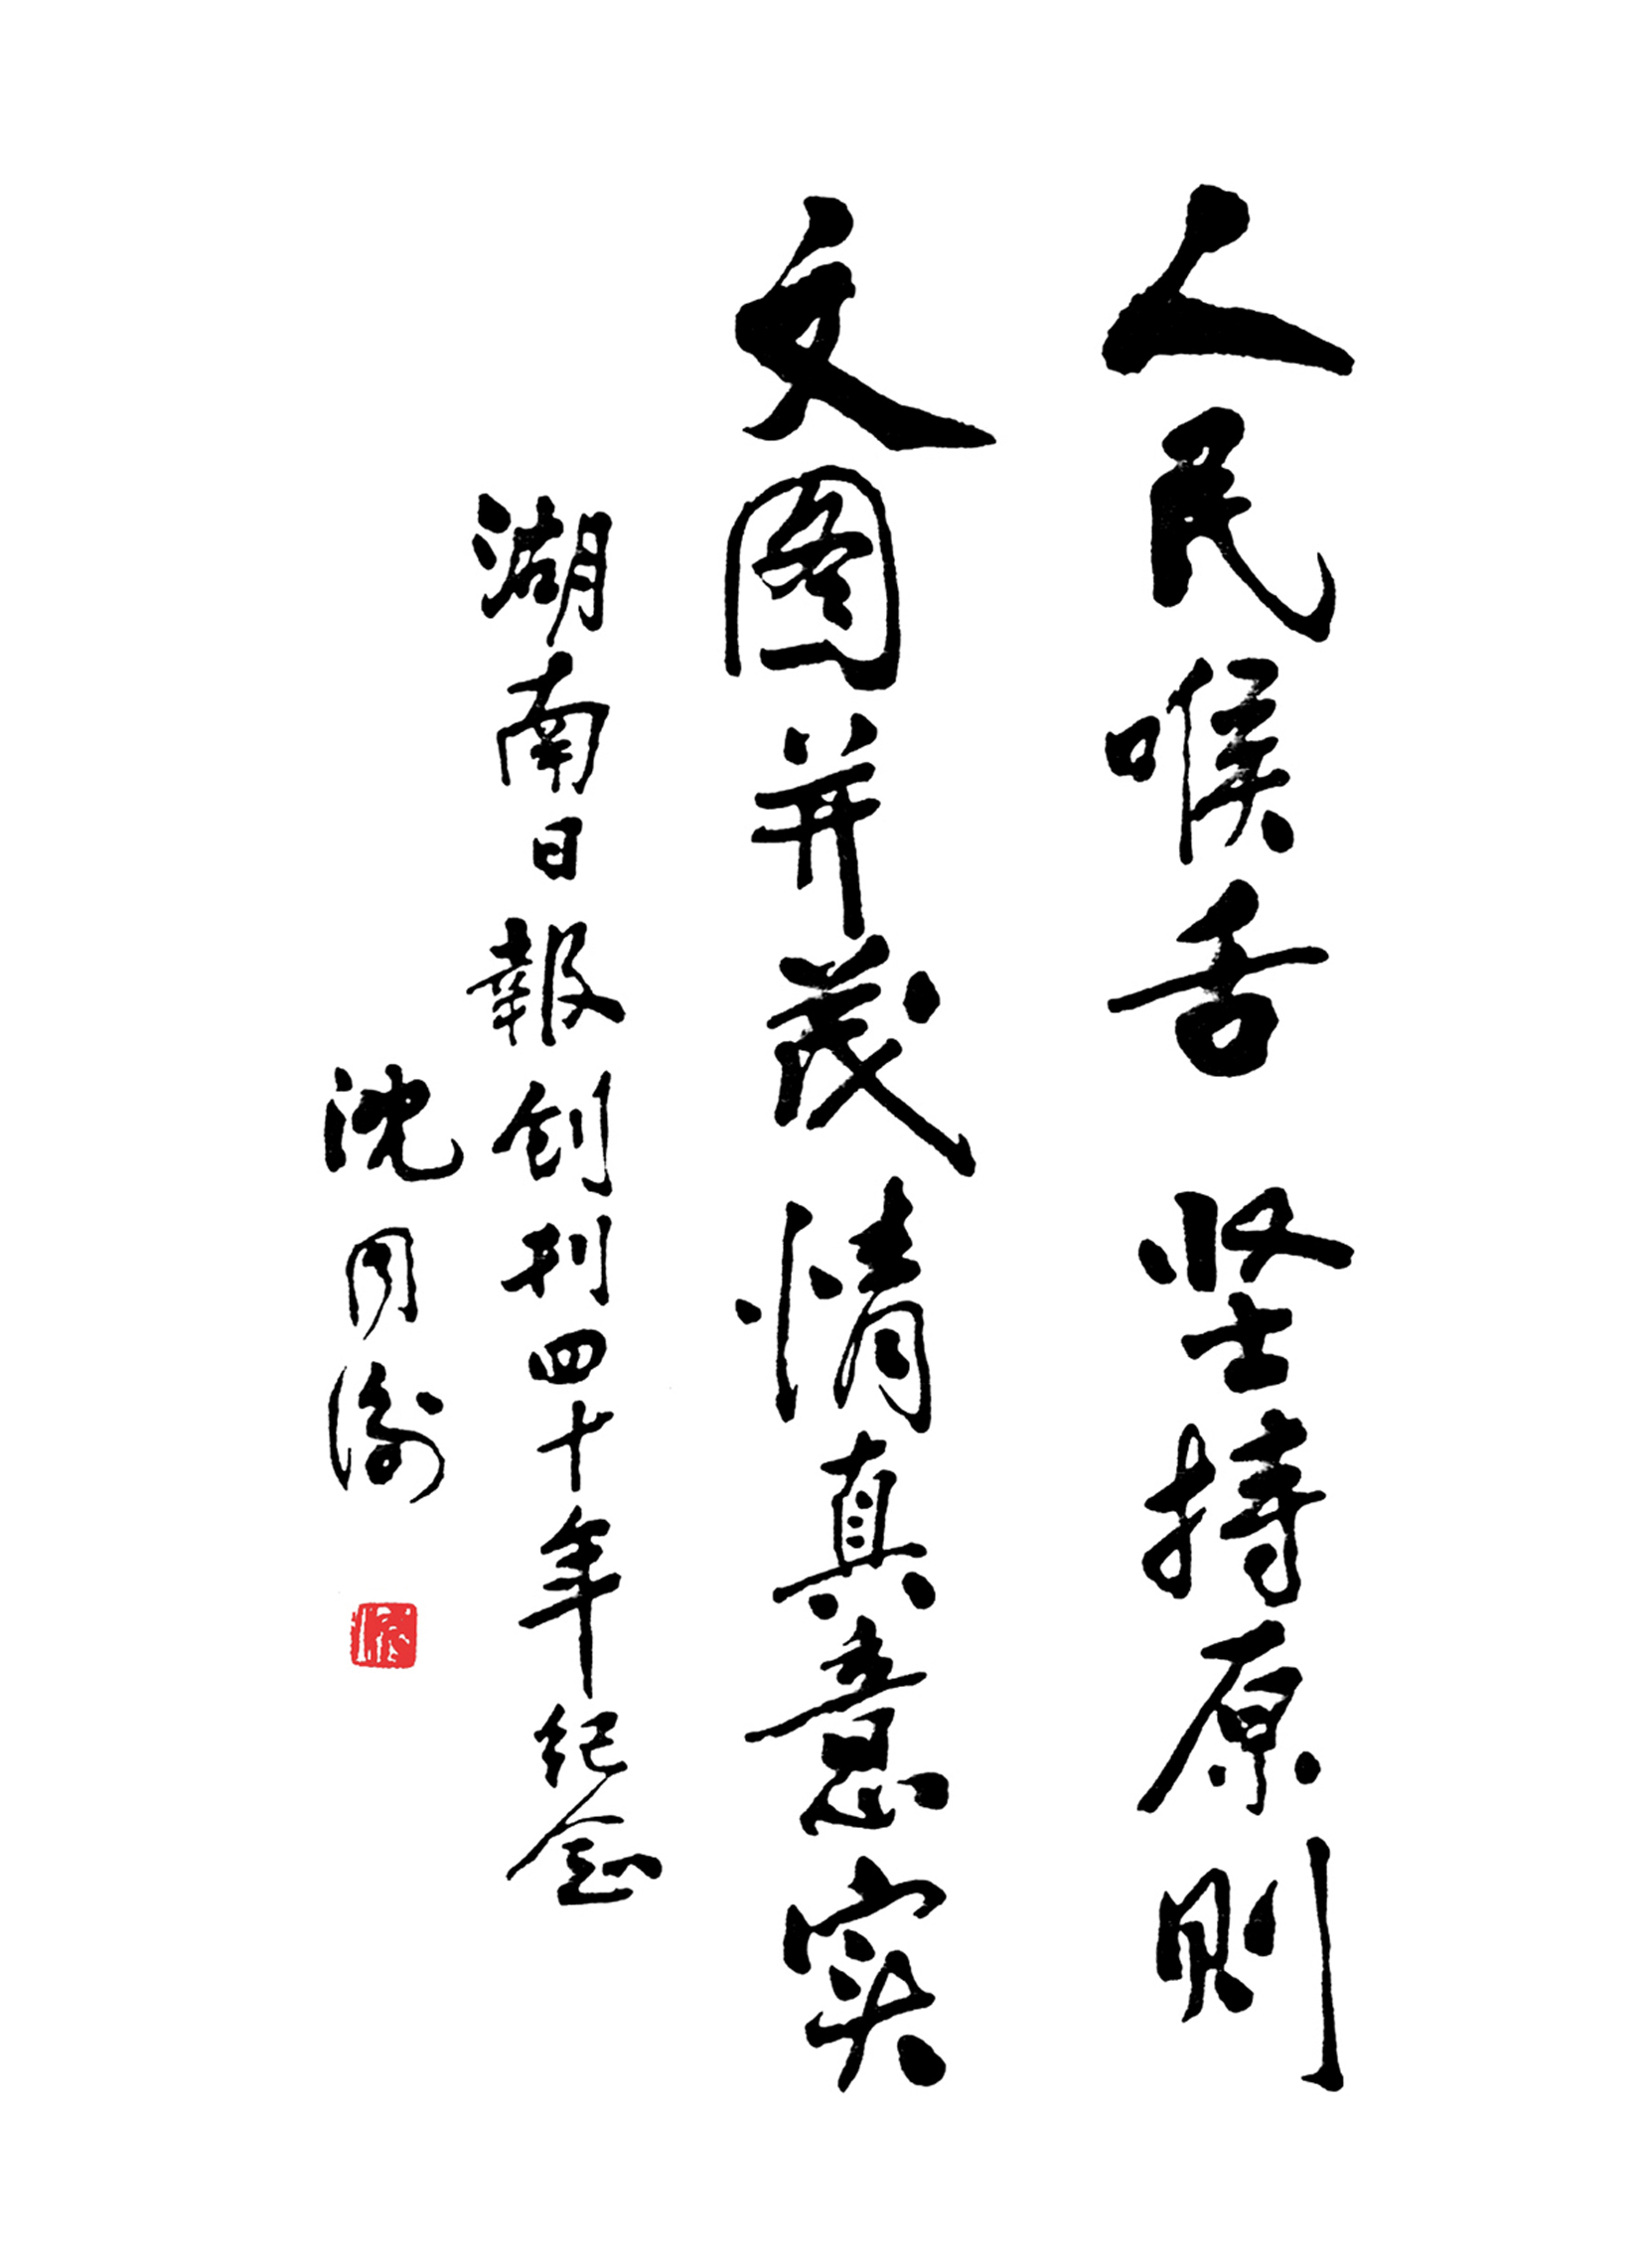 人民喉舌 坚持原则
文图并茂情真意实
湖南日報创刊四十年纪念
沈同衡